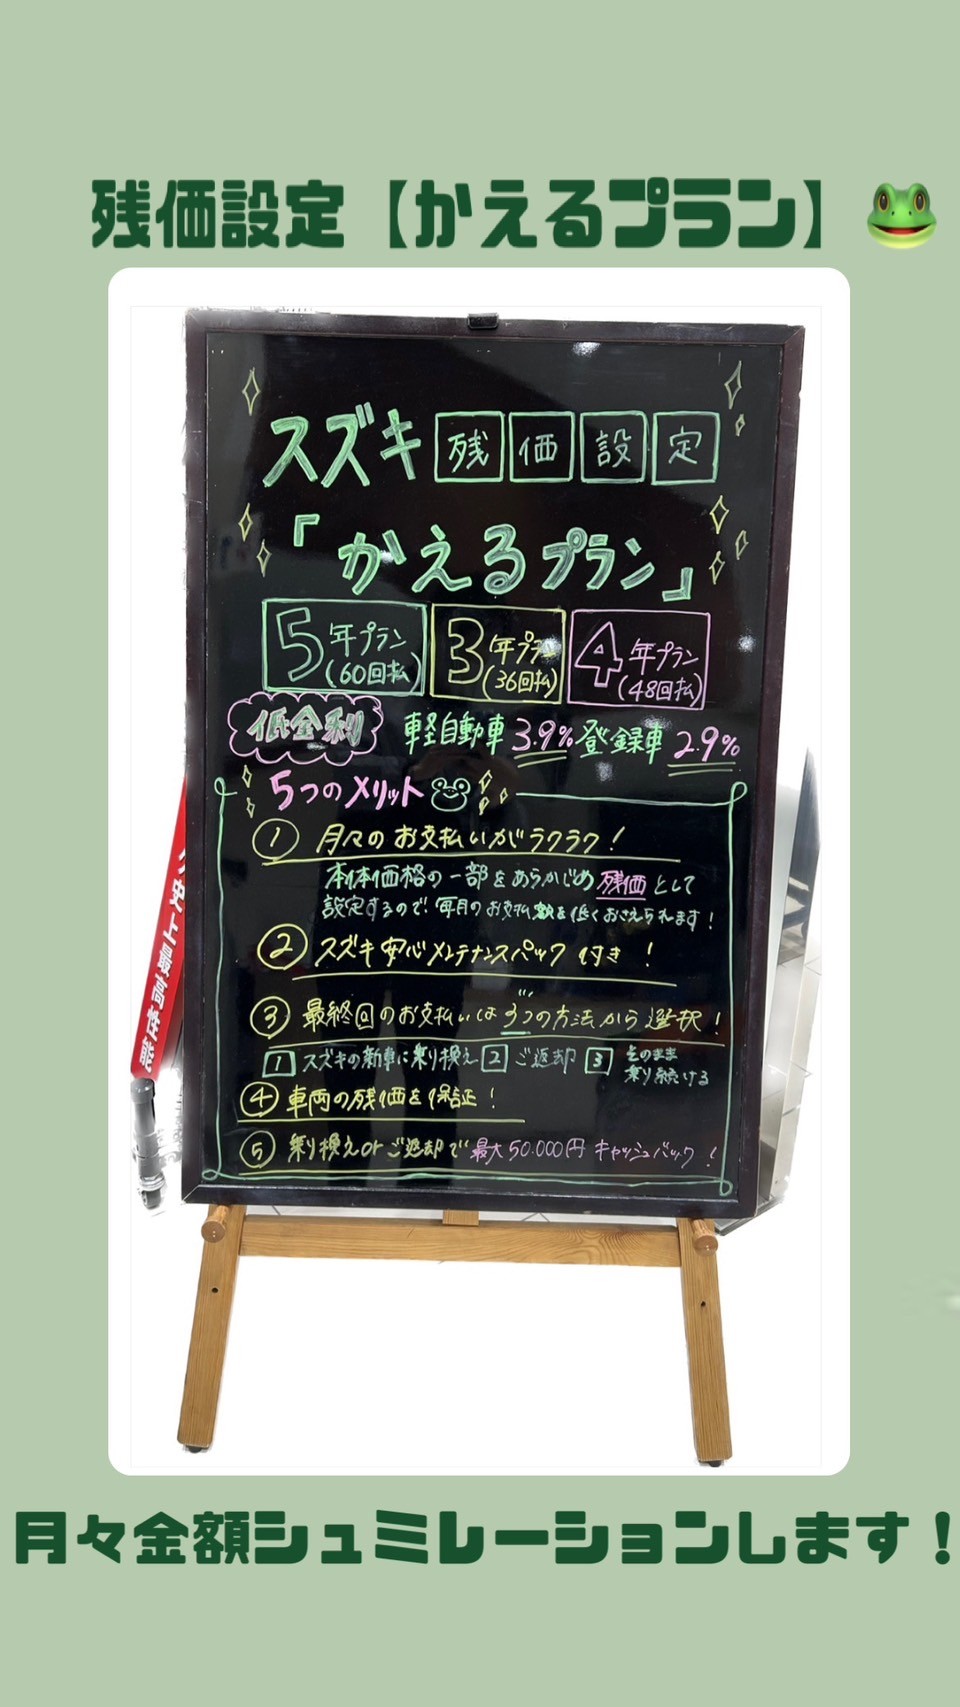 残価設定【かえるプラン】
スズキ 残価設定
「かえるプラン」
5年プラン(60回払) 3年プラン(36回払) 4年プラン(48回払)
低金利 軽自動車 3.9% 登録車 2.9%
5つのメリット
① 月々のお支払いがラクラク！
本体価格の一部をあらかじめ残価として
設定するので、毎月のお支払額を低くおさえられます！
② スズキ安心メンテナンスパック付き！
③ 最終回のお支払いは3つの方法から選択！
1 スズキの新車に乗り換え 2 ご返却 3 そのまま乗り続ける
④ 車両の残価を保証！
⑤ 乗り換えorご返却で最大50.000円キャッシュバック！
史上最高性能
月々金額シュミレーションします！